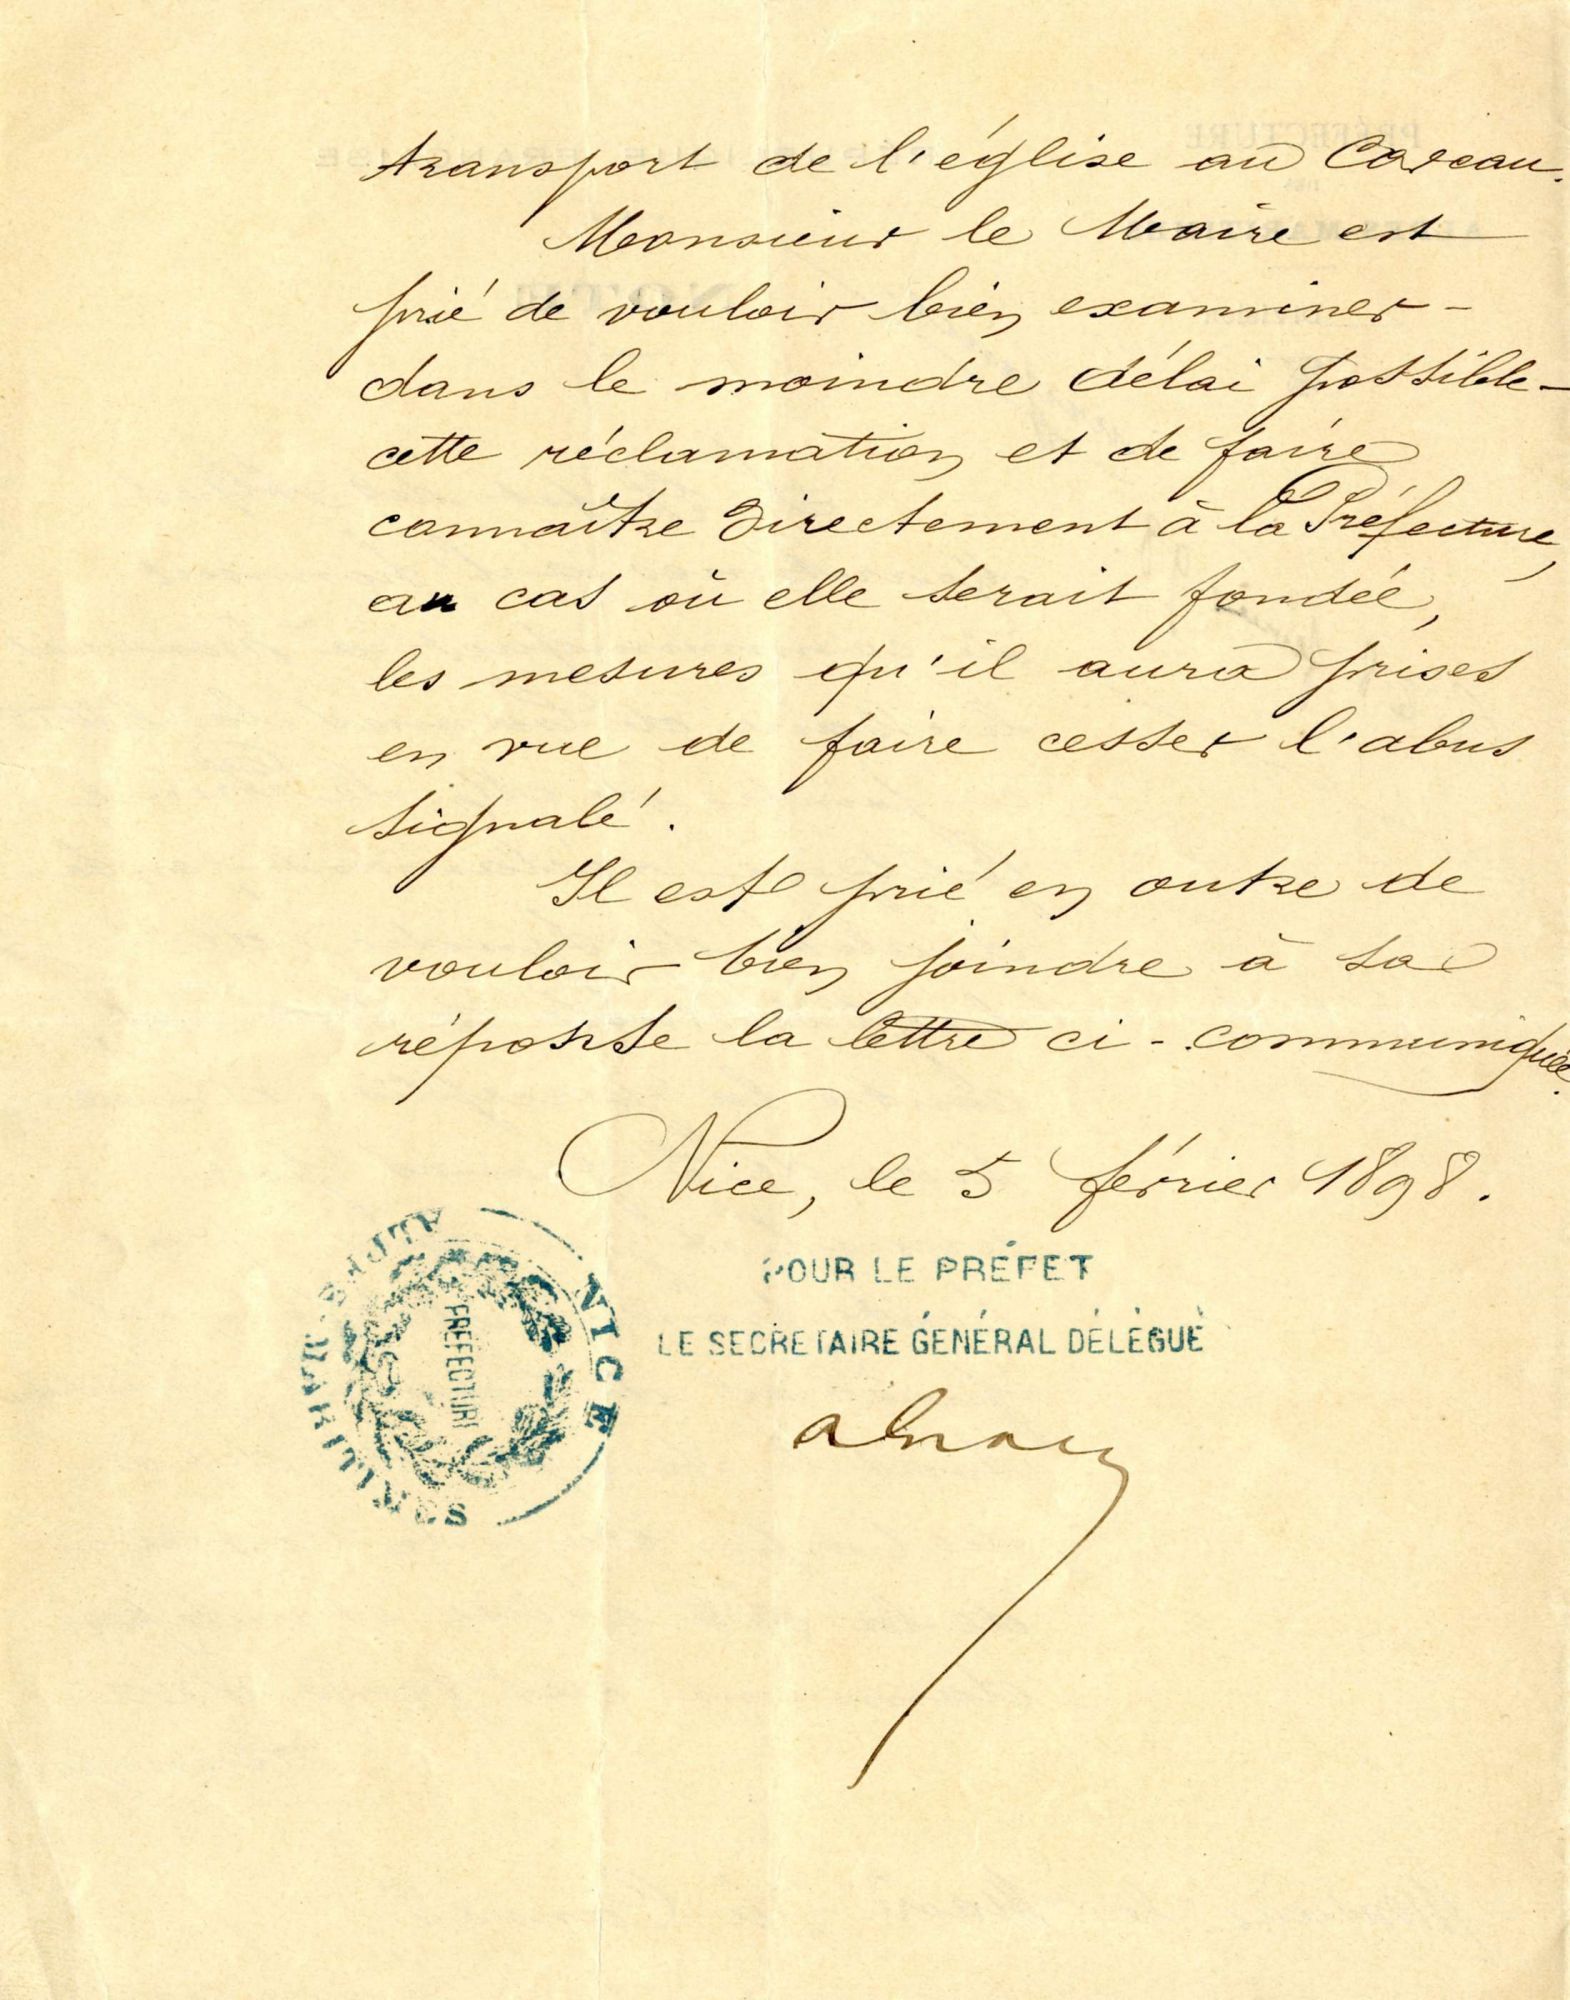 transport de l'église au Caveau.
Monsieur le Maire est
prié de vouloir bien examiner -
dans le moindre délai possible -
cette réclamation et de faire
connaître directement à la Préfecture,
au cas où elle serait fondée,
les mesures qu'il aura prises
en vue de faire cesser l'abus
signalé.
Il est prié en outre de
vouloir bien joindre à sa
réponse la lettre ci-communiquée.
Nice, le 5 février 1898.
POUR LE PRÉFET
LE SECRETAIRE GÉNÉRAL DÉLÉGUÉ
NICE
PREFECTURE
ALPES MARITIMES